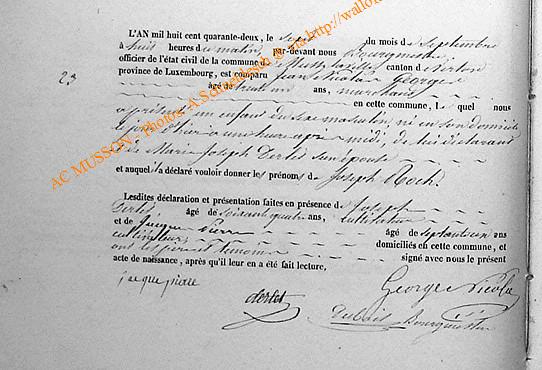 L'AN mil huit cent quarante-deux, le sept du mois de Septembre
à huit heures du matin, par-devant nous Bourgmestre
officier de l'état civil de la commune de Mussy-la-ville canton de Virton
province de Luxembourg, est comparu Jean Nicolas George
âgé de trente un ans, marchand
23
en cette commune, lequel nous
a présenté un enfant du sexe masculin, né en son domicile
le jour d'hier à une heure après midi, de lui déclarant
et de Marie Joseph Derlet son épouse
et auquel il a déclaré vouloir donner les prénoms de Joseph Roch.
Lesdites déclaration et présentation faites en présence de Joseph
Derlet âgé de soixante quatre ans, Cultivateur
et de Jacque Pierre âgé de septante cinq ans
cultivateur domiciliés en cette commune, et
ont les père et témoins signé avec nous le présent
acte de naissance, après qu'il leur en a été fait lecture,
jacque piere
derlet
George Nicolas
Bourgmestre
AC MUSSON - Photos: A.Schneidesch & via http://wallo